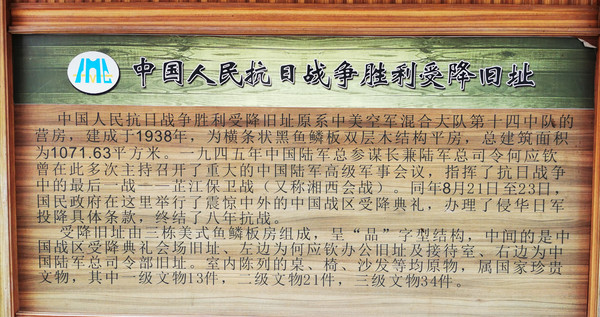 中国人民抗日战争胜利受降旧址
中国人民抗日战争胜利受降旧址原系中美空军混合大队第十四中队的
营房，建成于1938年，为横条状黑鱼鳞板双层木结构平房，总建筑面积
为1071.63平方米。一九四五年中国陆军总参谋长兼陆军总司令何应钦
曾在此多次主持召开了重大的中国陆军高级军事会议，指挥了抗日战争
中的最后一战——芷江保卫战（又称湘西会战）。同年8月21日至23日，
国民政府在这里举行了震惊中外的中国战区受降典礼，办理了侵华日军
投降具体条款，终结了八年抗战。
受降旧址由三栋美式鱼鳞板房组成，呈“品”字型结构，中间的是中
国战区受降典礼会场旧址、左边为何应钦办公旧址及接待室、右边为中
国陆军总司令部旧址。室内陈列的桌、椅、沙发等均原物，属国家珍贵
文物，其中一级文物13件，二级文物21件，三级文物34件。